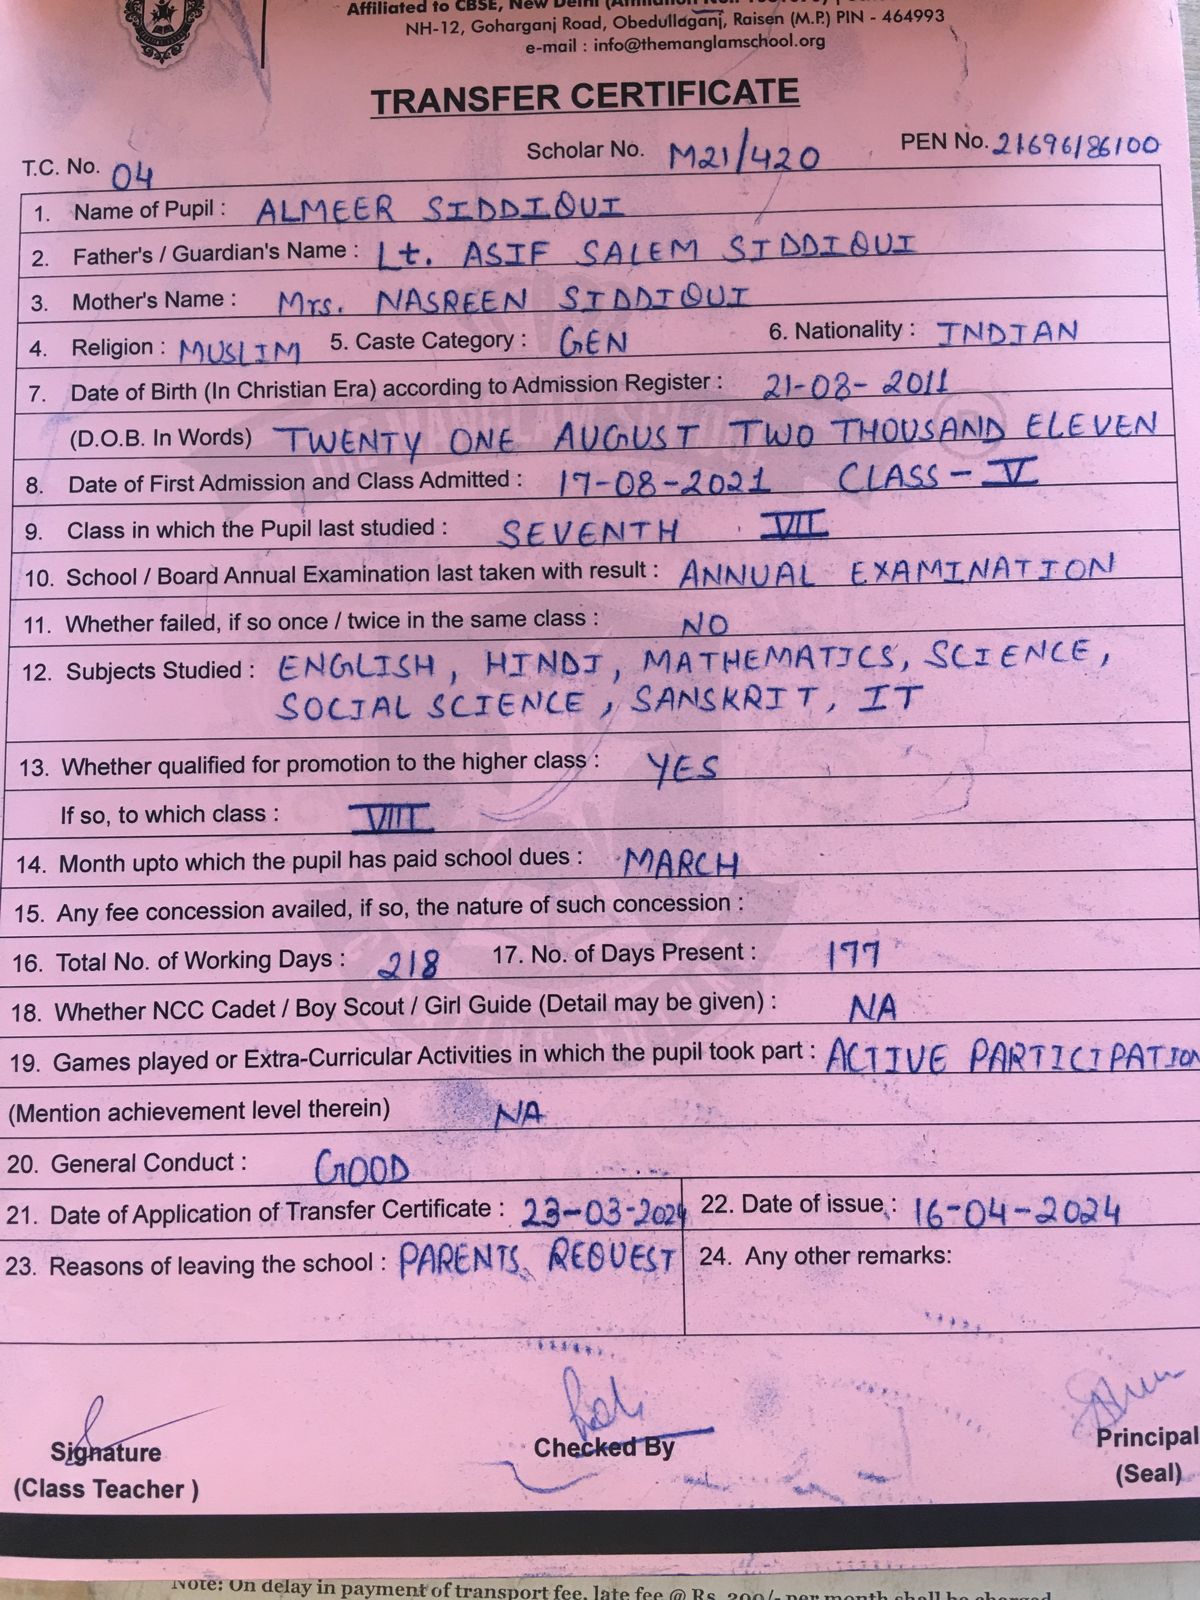 Affiliated to CBSE, New Delhi
NH-12, Goharganj Road, Obedullaganj, Raisen (M.P.) PIN - 464993
e-mail : info@themanglamschool.org
TRANSFER CERTIFICATE
T.C. No. 04 Scholar No. M21/420 PEN No. 21696186100
1. Name of Pupil : ALMEER SIDDIQUI
2. Father's / Guardian's Name : Lt. ASIF SALEM SIDDIQUI
3. Mother's Name : Mrs. NASREEN SIDDIQUI
4. Religion : MUSLIM 5. Caste Category : GEN 6. Nationality : INDIAN
7. Date of Birth (In Christian Era) according to Admission Register : 21-08-2011
(D.O.B. In Words) TWENTY ONE AUGUST TWO THOUSAND ELEVEN
8. Date of First Admission and Class Admitted : 17-08-2021 CLASS-V
9. Class in which the Pupil last studied : SEVENTH VII
10. School / Board Annual Examination last taken with result : ANNUAL EXAMINATION
11. Whether failed, if so once / twice in the same class : NO
12. Subjects Studied : ENGLISH, HINDI, MATHEMATICS, SCIENCE,
SOCIAL SCIENCE, SANSKRIT, IT
13. Whether qualified for promotion to the higher class : YES
If so, to which class : VIII
14. Month upto which the pupil has paid school dues : MARCH
15. Any fee concession availed, if so, the nature of such concession :
16. Total No. of Working Days : 218 17. No. of Days Present : 177
18. Whether NCC Cadet / Boy Scout / Girl Guide (Detail may be given) : NA
19. Games played or Extra-Curricular Activities in which the pupil took part : ACTIVE PARTICIPATION
(Mention achievement level therein) NA
20. General Conduct : GOOD
21. Date of Application of Transfer Certificate : 23-03-2024 22. Date of issue : 16-04-2024
23. Reasons of leaving the school : PARENTS REQUEST 24. Any other remarks:
Signature Checked By Principal
(Class Teacher ) (Seal)
Note: On delay in payment of transport fee, late fee @ Rs. 200/- per month shall be charged